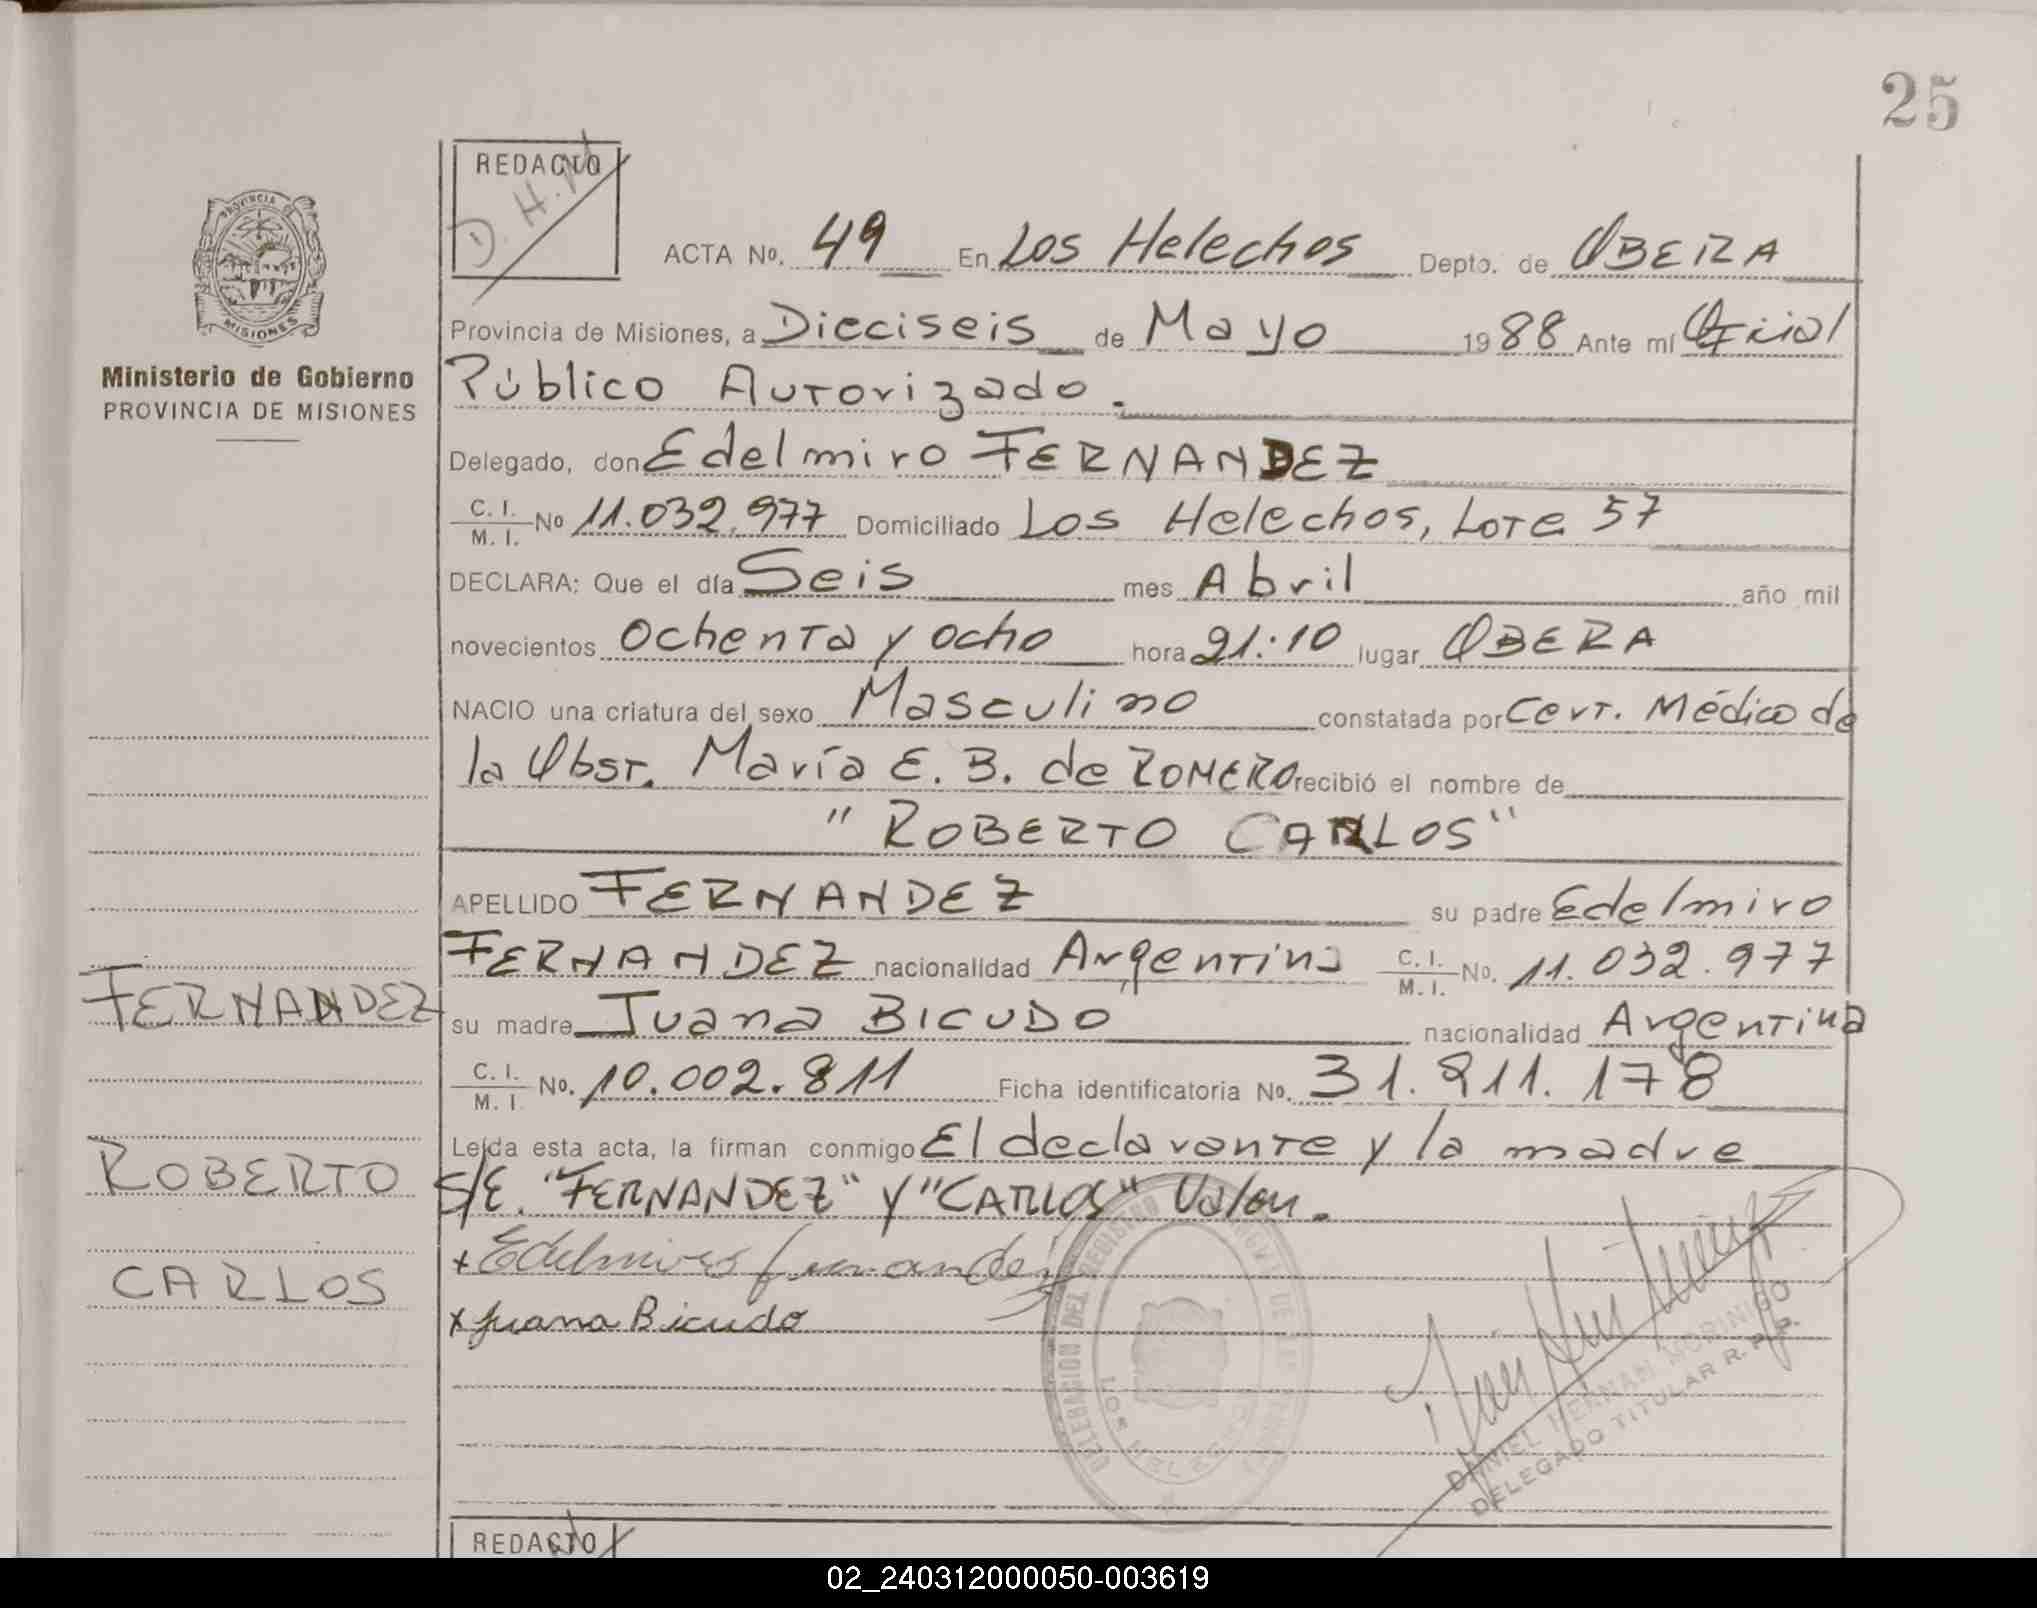 25
REDACTO
D. H. M
ACTA Nº. 49 En Los Helechos Depto. de OBERA
PROVINCIA DE
MISIONES
Provincia de Misiones, a Dieciseis de Mayo 1988 Ante mí Oficial
Ministerio de Gobierno
PROVINCIA DE MISIONES
Público Autorizado.
Delegado, don Edelmiro FERNANDEZ
C. I. / M. I. Nº 11.032.977 Domiciliado Los Helechos, Lote 57
DECLARA: Que el día Seis mes Abril año mil
novecientos ochenta y ocho hora 21:10 lugar OBERA
NACIO una criatura del sexo Masculino constatada por Cert. Médico de
la Obst. María E. B. de ROMERO recibió el nombre de
"ROBERTO CARLOS"
APELLIDO FERNANDEZ su padre Edelmiro
FERNANDEZ nacionalidad Argentina C. I. / M. I. No. 11.032.977
FERNANDEZ
su madre Juana BICUDO nacionalidad Argentina
C. I. / M. I. No. 10.002.811 Ficha identificatoria No. 31.811.178
Leída esta acta, la firman conmigo El declarante y la madre
ROBERTO
S/E. "FERNANDEZ" y "CARLOS" Valen.
+ Edelmiro Fernandez
CARLOS
x Juana Bicudo
DELEGACION DEL REGISTRO
DANIEL HERNAN MORINIGO
DELEGADO TITULAR R. P. P.
REDACTO
02_240312000050-003619